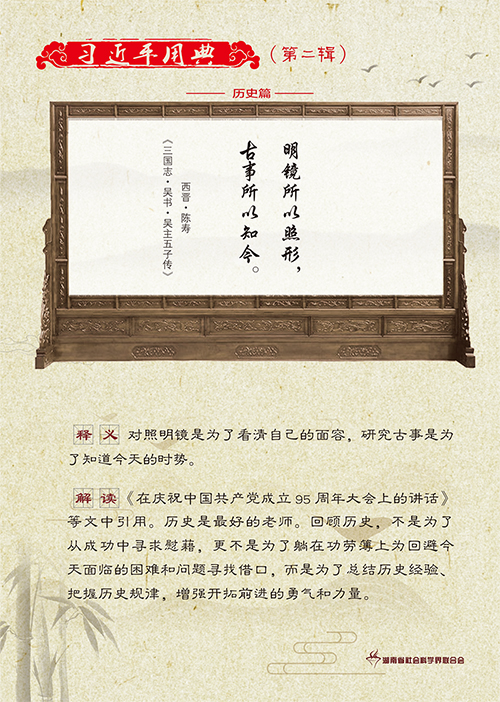 习近平用典
（第二辑）
历史篇
明镜所以照形，
古事所以知今。
西晋·陈寿
《三国志·吴书·吴主五子传》
释义 对照明镜是为了看清自己的面容，研究古事是为
了知道今天的时势。
解读 《在庆祝中国共产党成立 95 周年大会上的讲话》
等文中引用。历史是最好的老师。回顾历史，不是为了
从成功中寻求慰藉，更不是为了躺在功劳簿上为回避今
天面临的困难和问题寻找借口，而是为了总结历史经验、
把握历史规律，增强开拓前进的勇气和力量。
湖南省社会科学界联合会